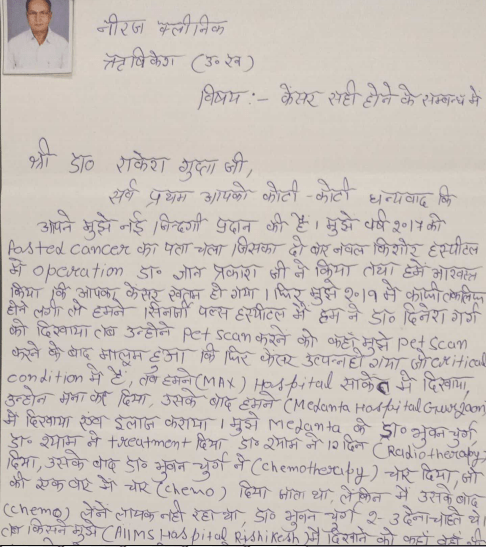 नीरज क्लीनिक
ऋषिकेश (उ० ख०)
विषय :- केंसर सही होने के सम्बन्ध मे
श्री डा० राकेश गुप्ता जी,
सर्व प्रथम आपको कोटी-कोटी धन्यवाद कि
आपने मुझे नई जिन्दगी प्रदान की है। मुझे वर्ष २०17 को
Pasted cancer का पता चला जिसका दो बार नवल किशोर हस्पीटल
मे operation डा० ज्ञान प्रकाश जी ने किया तथा हमे
किया कि आपका केंसर खत्म हो गया। फिर मुझे २०19 मे काफी तकलिफ
होने लगी तो हमने पल्स हस्पीटल मे हम ने डा० दिनेश गर्ग
को दिखाया तब उन्होने Pet scan करने को कहा मुझे Pet scan
करने के बाद मालूम हुआ कि फिर केंसर उत्पन्न हो गया जो critical
condition मे है, तब हमने (MAX) Hospital साकेत मे दिखाया,
उन्होने मना कर दिया, उसके बाद हमने (Medanta Hospital Gurugram)
मे दिखाया एंव इलाज कराया। मुझे Medanta के डा० भुवन चुर्ग
डा० श्याम ने treatment दिया डा० श्याम ने 12 दिन (Radiotherapy)
दिया, उसके बाद डा० भुवन चुर्ग ने (chemotherapy) चार दिया, जो
की एक बार मे चार (chemo) दिया जाता था, लेकिन मे उसके बाद
(chemo) लेने लायक नही रहा था, डा० भुवन चुर्ग 2-3 देना चाहते थे।
तब किसने मुझे (AIIMS Hospital Rishikesh) मे दिखाने को कहा वहाँ भी